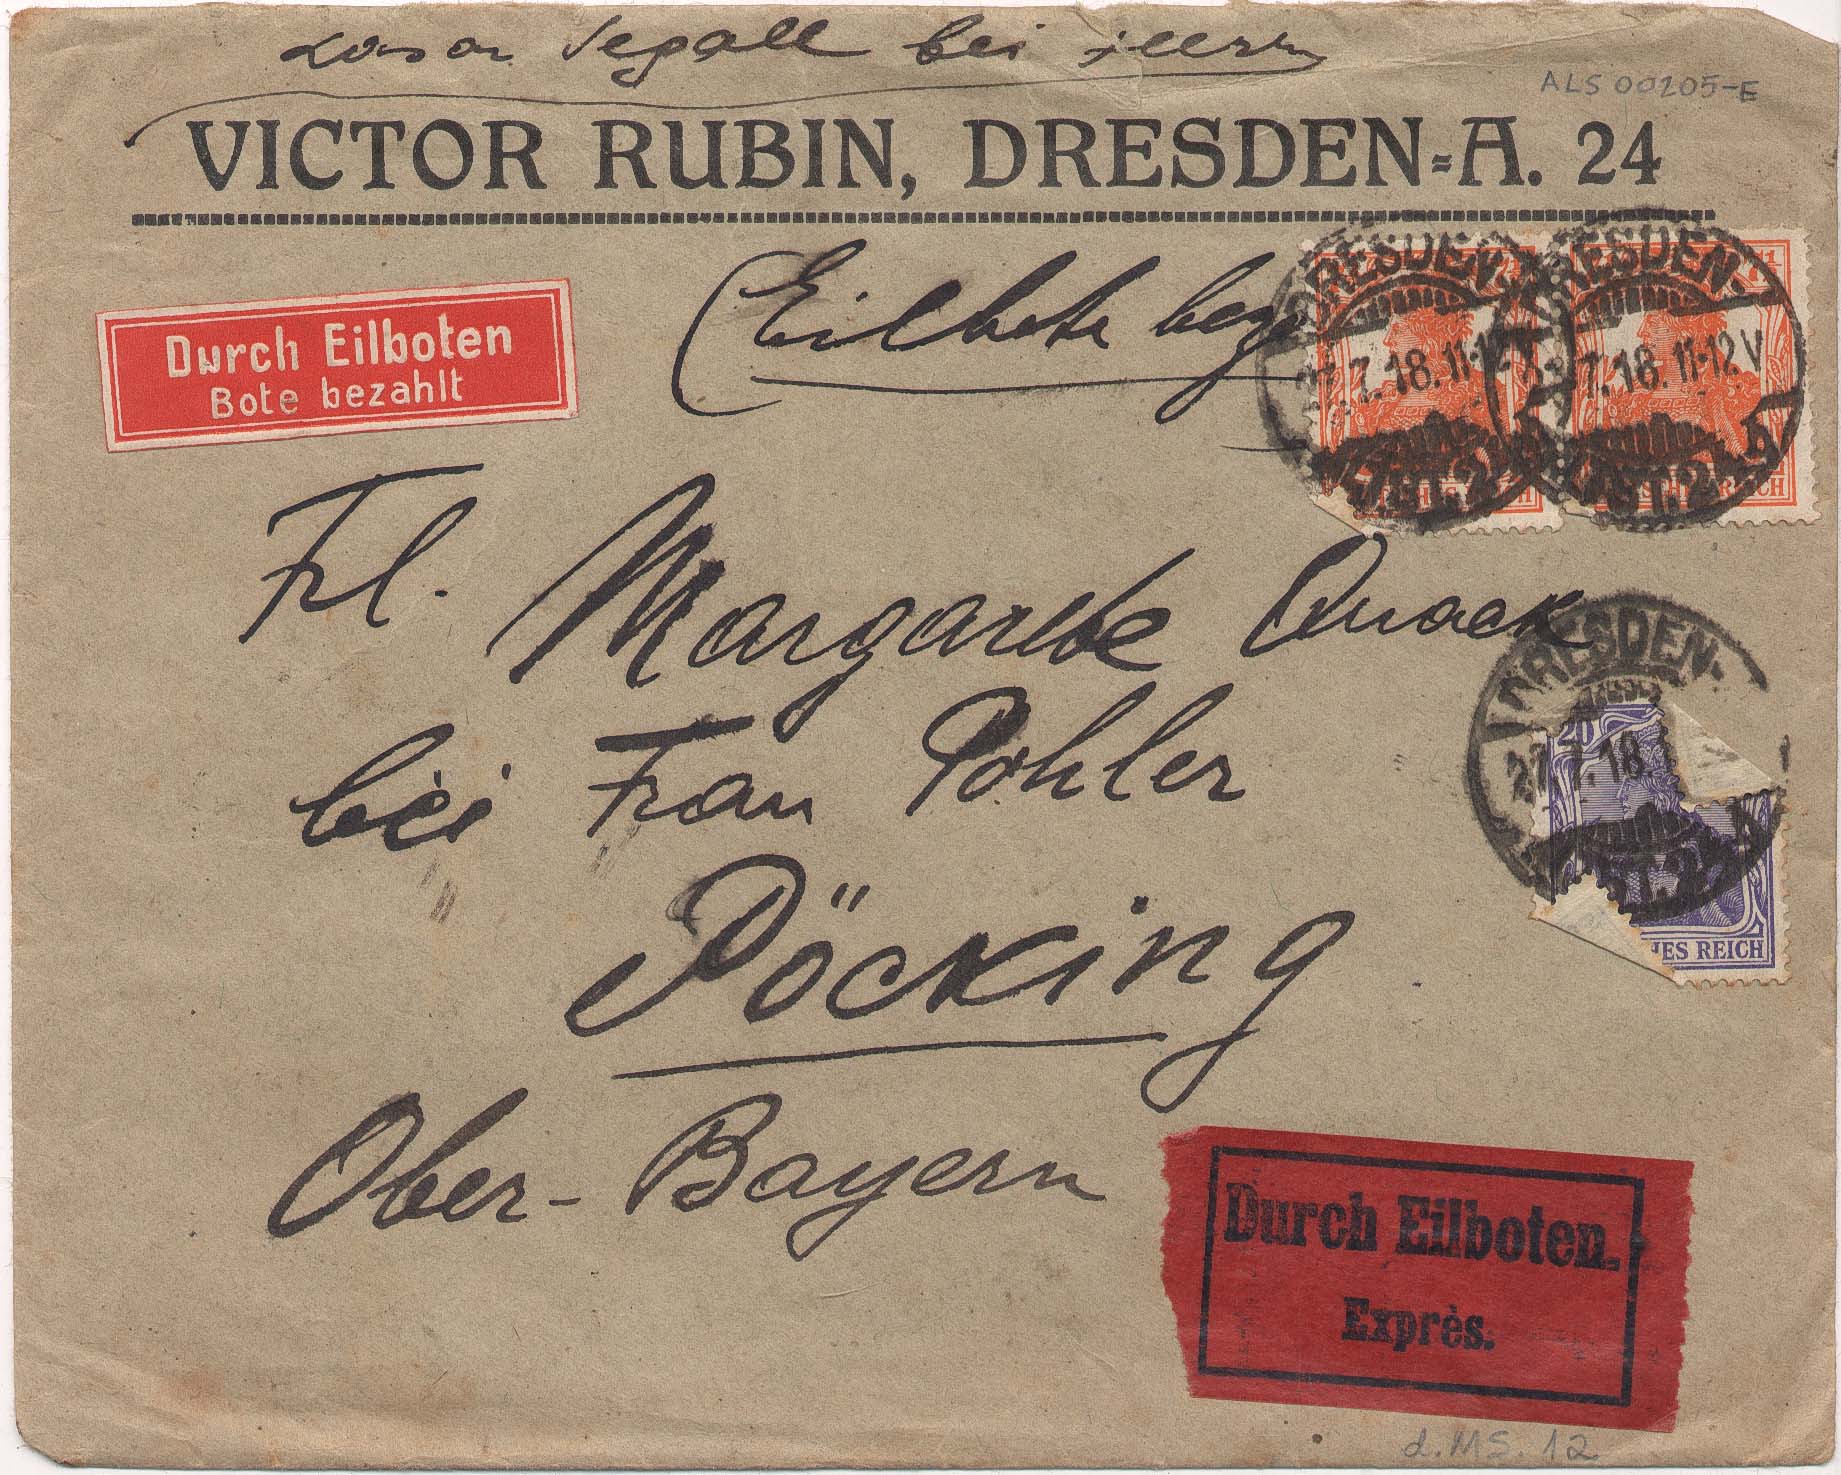 Lasar Segall bei Herrn
ALS 00205-E
VICTOR RUBIN, DRESDEN=A. 24
Durch Eilboten
Bote bezahlt
Eilbote bez
DRESDEN
27.7.18. 11-12 V
DRESDEN
7.18. 11-12 V
REICH
REICH
Fl. Margarete Quack
bei Frau Pohler
Pöcking
Ober-Bayern
DRESDEN
27.7.18.
20
HES REICH
Durch Eilboten.
Exprès.
d.MS.12